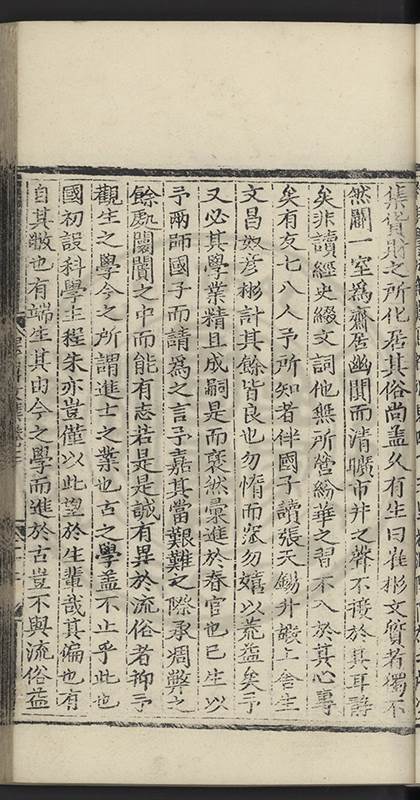 集貨財之所化居其俗尚孟久有生曰崔彬文質者獨不
然闢一室爲齋居幽閴而清曠市井之聲不接於其耳靜
矣非讀經史綴文詞他無所營紛華之習不入於其心專
矣有友七八人予所知者伴國子讀張天錫升殿上舍生
文昌 彦彬計其餘皆良也勿惰而窳勿嬉以荒益矣予
又必其學業精且成嗣是而褎然彙進於春官也已生以
予兩師國子而請爲之言予嘉其當艱難之際承凋弊之
餘處闤闠之中而能有志若是是誠有異於流俗者抑予
觀生之學今之所謂進士之業也古之學盖不止乎此也
國初設科學主程朱亦豈僅以此望於生輩哉其偏也有
自其敝也有端生其由今之學而進於古豈不與流俗益